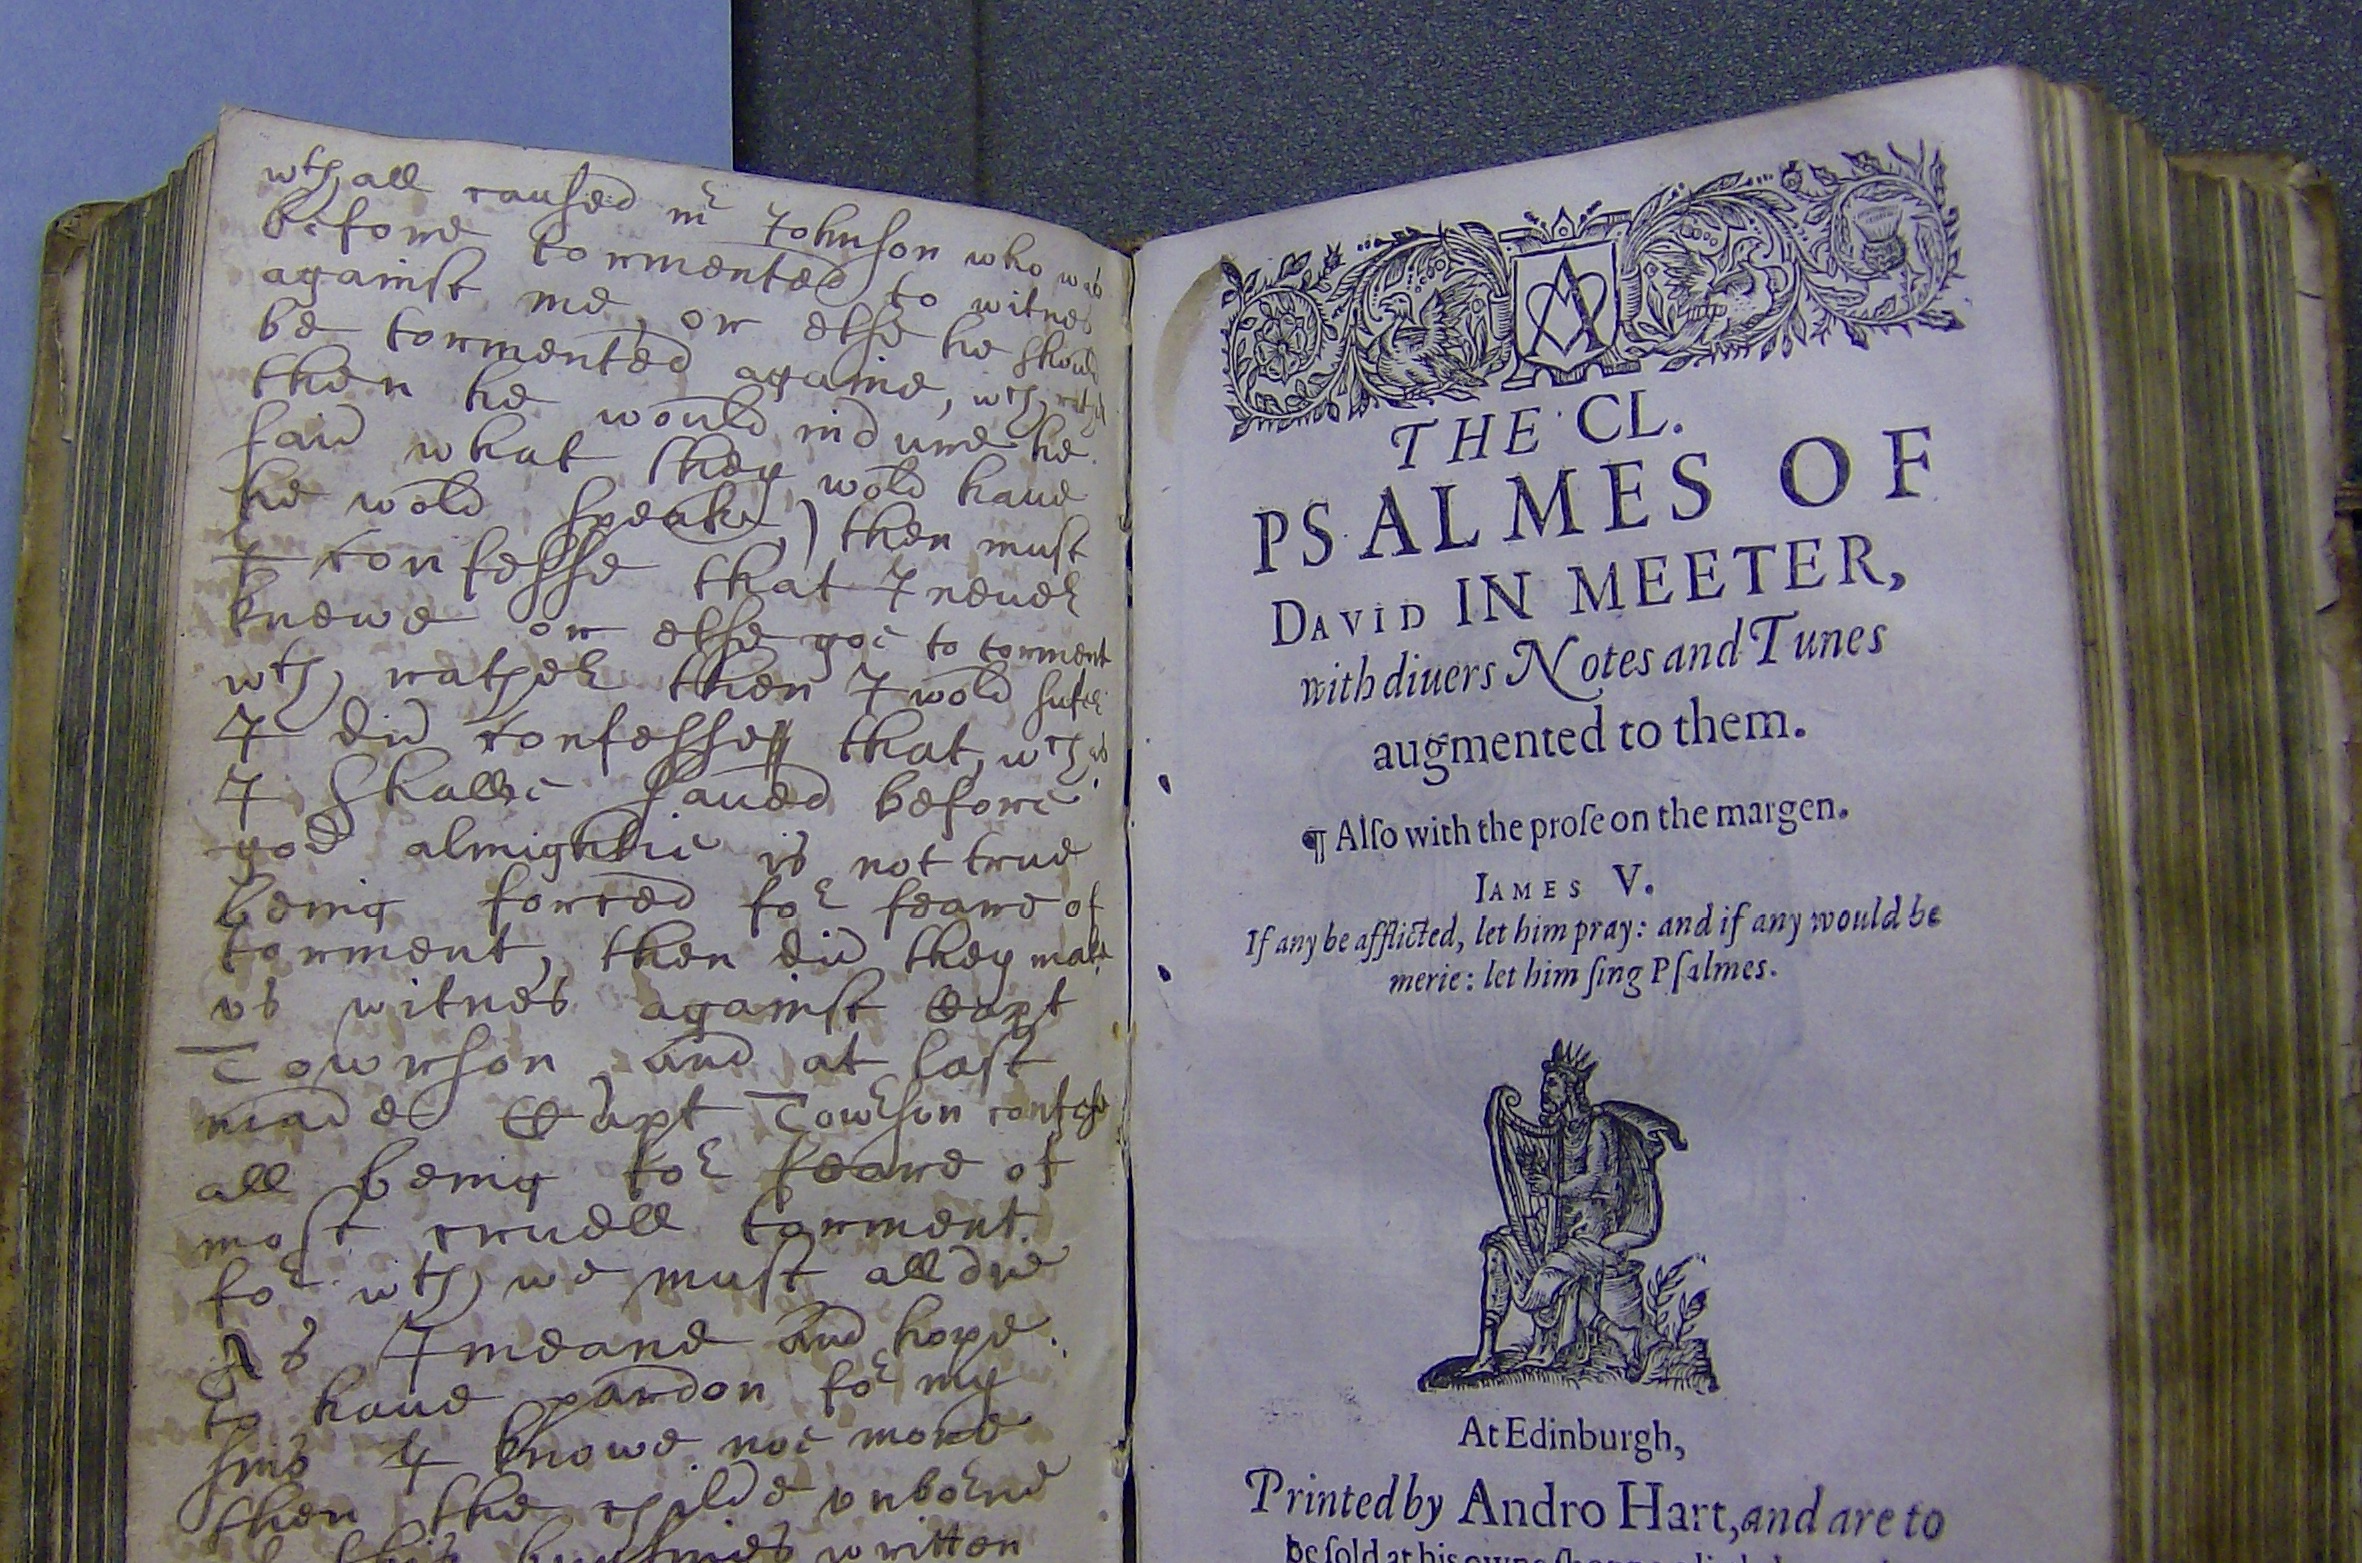 wth all caused mr Johnson who was
before tormented to witnes
against me, or else he should
be tormented againe, wth rather
then he would indure he
said what they wold haue
he wold speake,) then must
I confesse that I neuer
knewe or else goe to torment
wth rather then I wold sufer
I did confesse that, wch as
I shalbe saued before
god almightie is not true
being forced for feare of
torment, then did they make
vs witnes against Capt
Towrson, and at last
made Capt Towrson confesse
all being for feare of
most cruell torment.
for wch we must all die
As I meane and hope
to haue pardon for my
sins I knowe noe more
then the childe vnborne
this businies written
THE CL.
PSALMES OF
DAVID IN MEETER,
with diuers Notes and Tunes
augmented to them.
¶ Alſo with the proſe on the margen.
IAMES V.
If any be afflicted, let him pray: and if any would be
merie: let him ſing Pſalmes.
At Edinburgh,
Printed by Andro Hart, and are to
be ſold at his owne